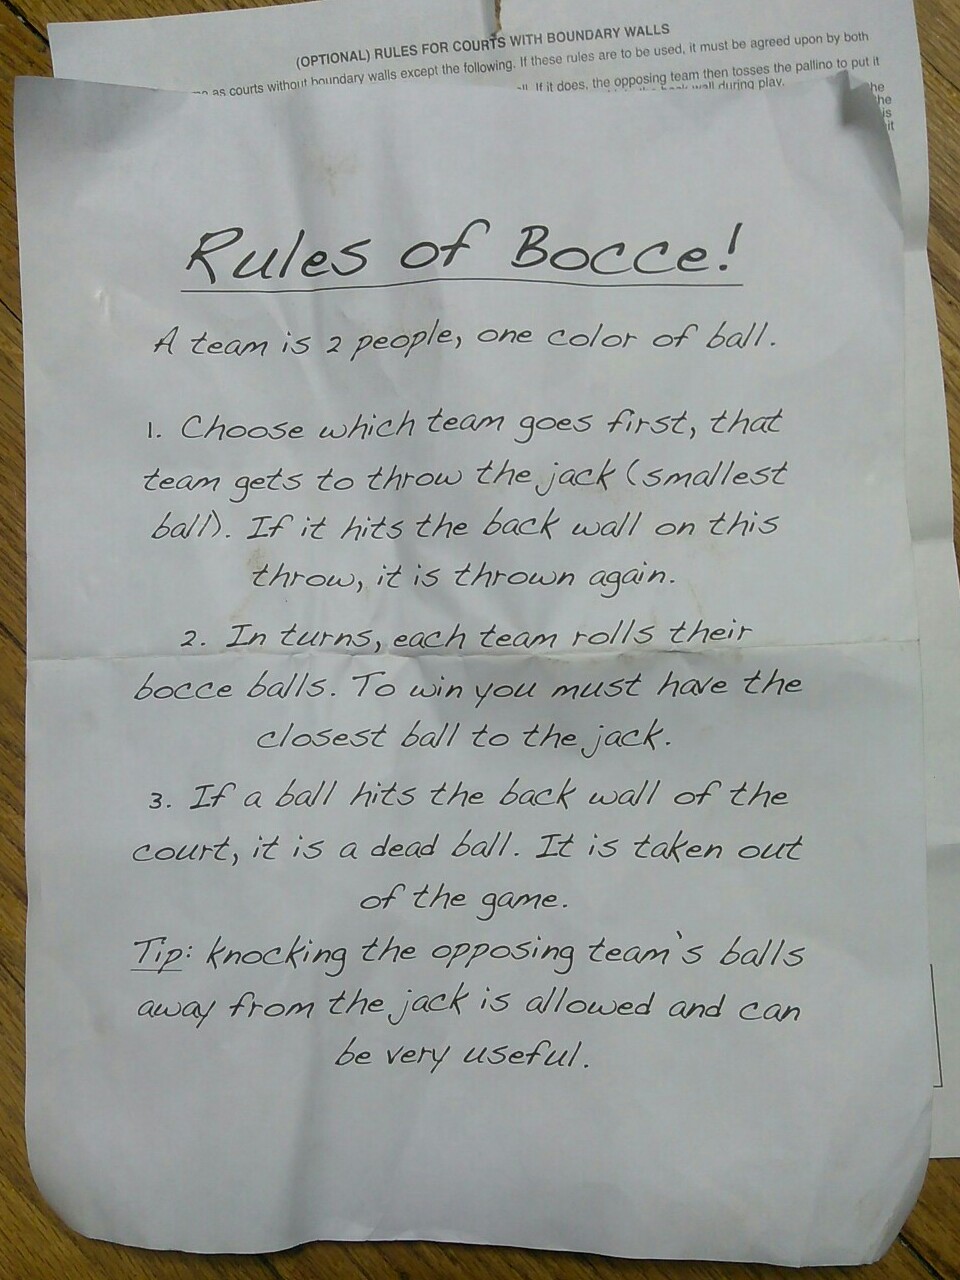 (OPTIONAL) RULES FOR COURTS WITH BOUNDARY WALLS
as courts without boundary walls except the following. If these rules are to be used, it must be agreed upon by both
If it does, the opposing team then tosses the pallino to put it
wall during play.
he
he
is
it
Rules of Bocce!
A team is 2 people, one color of ball.
1. Choose which team goes first, that
team gets to throw the jack (smallest
ball). If it hits the back wall on this
throw, it is thrown again.
2. In turns, each team rolls their
bocce balls. To win you must have the
closest ball to the jack.
3. If a ball hits the back wall of the
court, it is a dead ball. It is taken out
of the game.
Tip: knocking the opposing team's balls
away from the jack is allowed and can
be very useful.